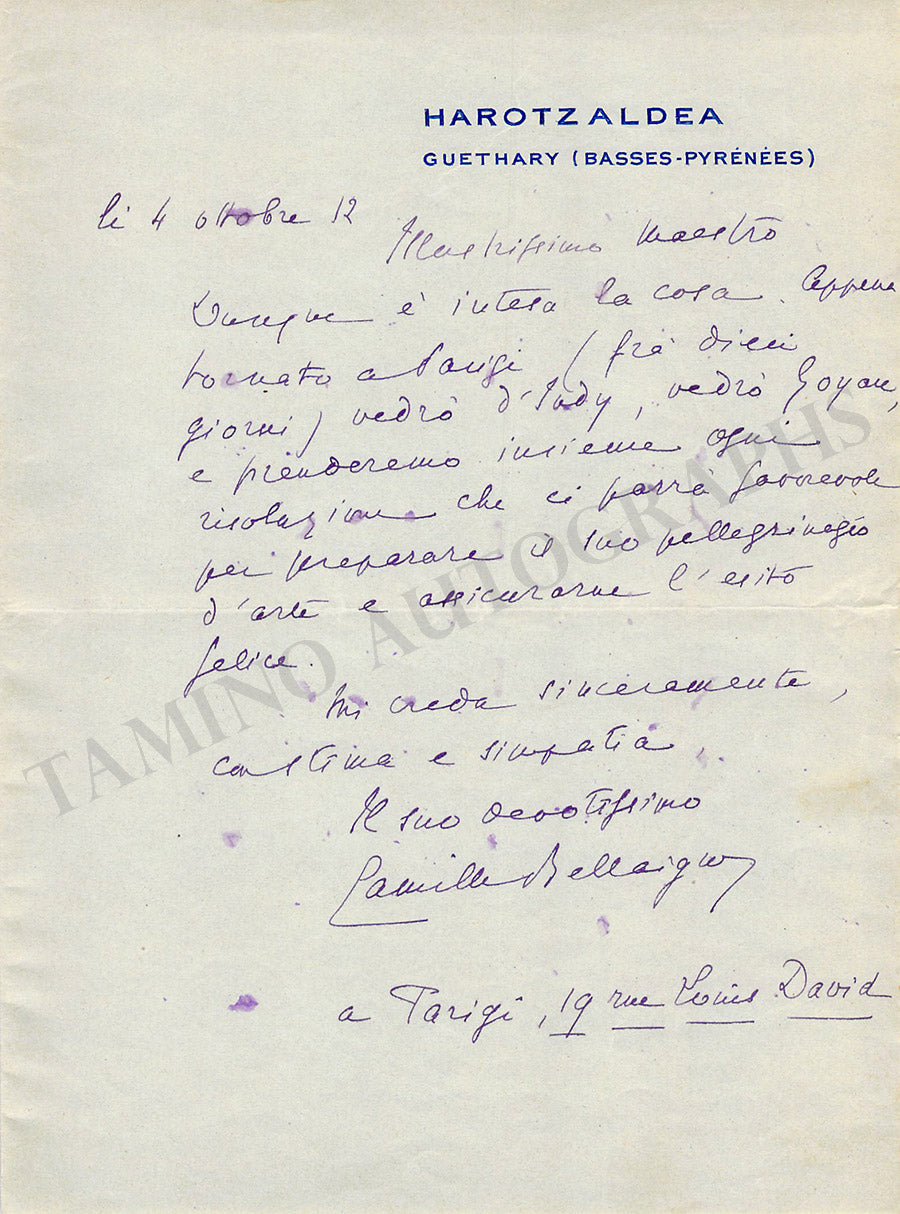 HAROTZ ALDEA
GUETHARY (BASSES-PYRÉNÉES)
li 4 ottobre 12
Illustrissimo Maestro
Dunque è intesa la cosa. Appena
tornato a Parigi (frà dieci
giorni) vedrò d'Indy, vedrò
e prenderemo insieme ogni
risoluzione che ci parrà favorevole
per preparare il suo pellegrinaggio
d'arte e assicurarne l'esito
felice.
Mi creda sinceramente,
con stima e simpatia,
Il suo devotissimo
Camille Bellaigue
a Parigi, 19 rue Louis David
TAMINO AUTOGRAPHS